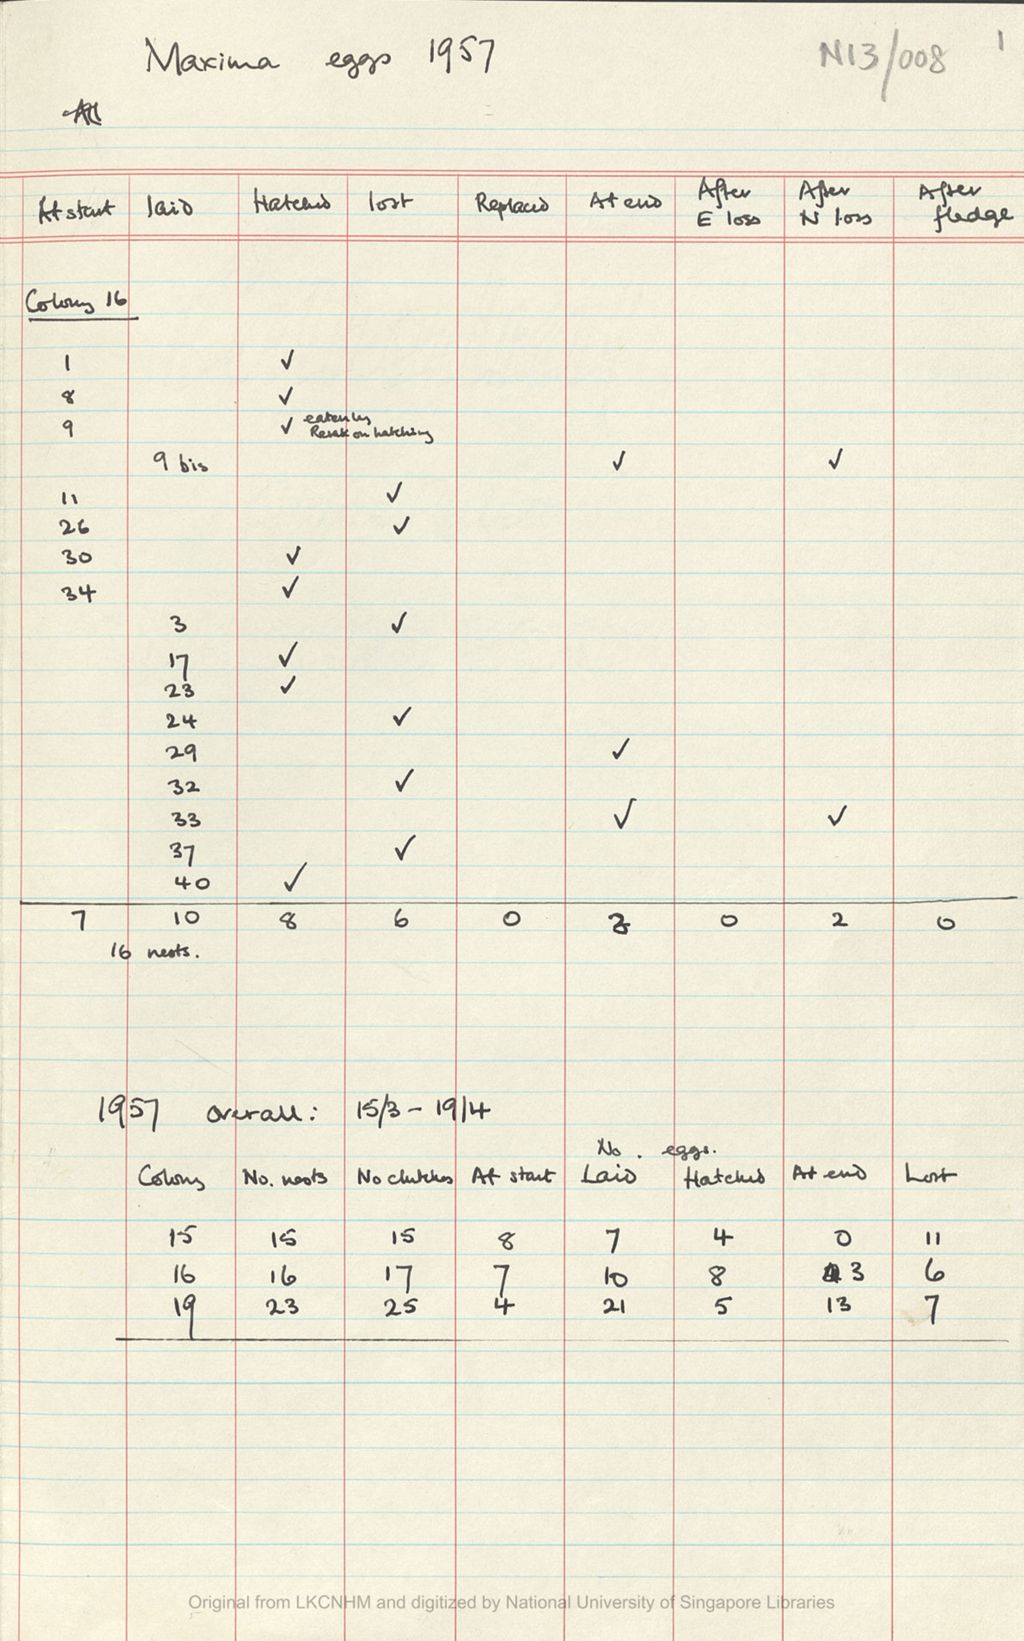 Maxima eggs 1957
N13/008
1
At start laid Hatched lost Replaced At end After E loss After N loss After fledge
Colony 16
1 ✓
8 ✓
9 ✓ eaten by
on hatching
9 bis ✓ ✓
11 ✓
26 ✓
30 ✓
34 ✓
3 ✓
17 ✓
23 ✓
24 ✓
29 ✓
32 ✓
33 ✓ ✓
37 ✓
40 ✓
7 10 8 6 0 3 0 2 0
16 nests.
1957 overall: 15/3 - 19/4
No. eggs.
Colony No. nests No clutches At start Laid Hatched At end Lost
15 15 15 8 7 4 0 11
16 16 17 7 10 8 3 6
19 23 25 4 21 5 13 7
Original from LKCNHM and digitized by National University of Singapore Libraries